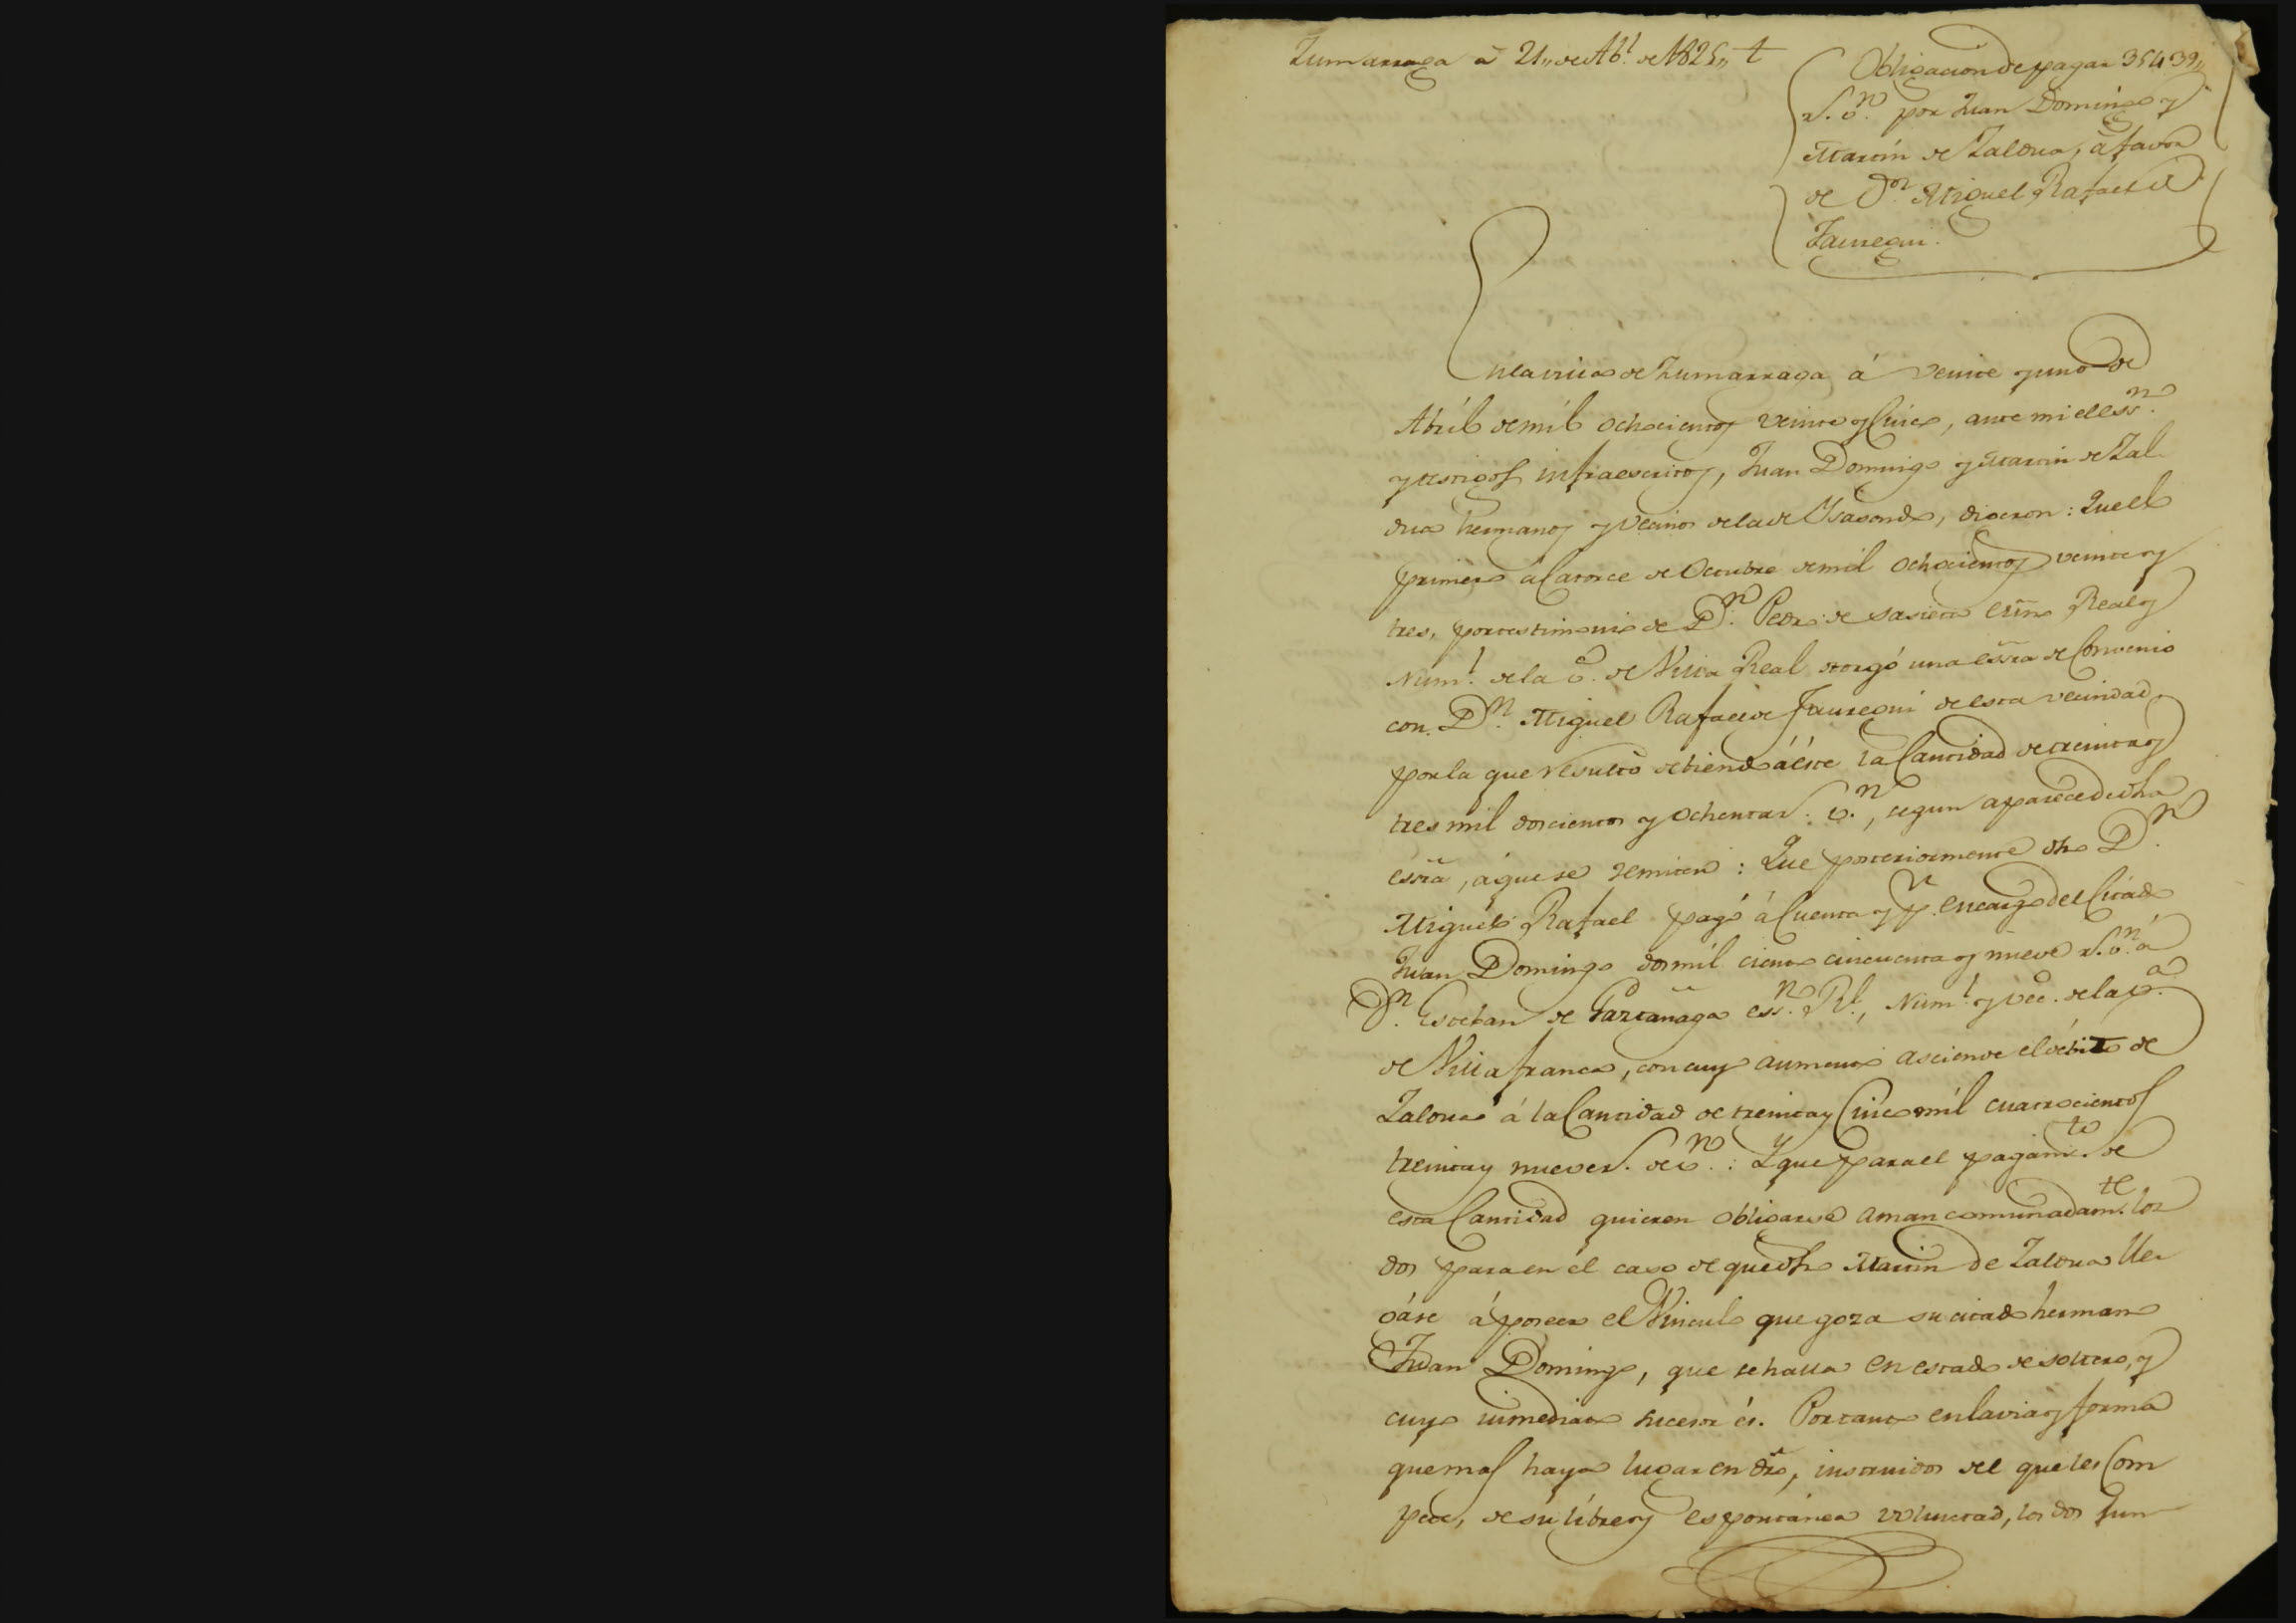 Zumarraga a 21,, de Ab.l de 1825,, t
Obligacion de pagar 35439,,
r.s v.n por Juan Domingo y
Martin de Zaldua, á favor
de D.n Miguel Rafael de
Jauregui.
En la villa de Zumarraga á veinte y uno de
Abril de mil ochocientos veinte y Cinco, ante mi el ess.n
y testigos infraescritos, Juan Domingo y Martin de Zal
dua hermanos y vecinos de la de Ysasondo, digeron: Que el
primero á Catorce de Octubre de mil ochocientos veinte y
tres, por testimonio de D.n Pedro de Sasieta essno Real y
Num.l de la v.a de Villa Real otorgó una essra de Convenio
con D.n Miguel Rafael de Jauregui de esta vecindad,
por la que resultó debiendo á éste la Cantidad de treinta y
tres mil doscientos y ochenta r.s v.n, segun aparece de dha
essra, á que se remiten: Que posteriormente dho D.n
Miguel Rafael pagó á Cuenta y p.r encargo del Citado
Juan Domingo dos mil ciento cincuenta y nueve r.s v.n á
D.n Esteban de Garcañaga ess.no R.l, Num.l y vec.o de la v.a
de Villafranca, con cuyo aumento asciende el débito de
Zaldua á la Cantidad de treinta y Cinco mil cuatrocientos
treinta y nueve r.s de v.n: Y que para el pagam.to de
esta Cantidad quieren obligarse amancomunadam.te los
dos para en él caso de que dho Martin de Zaldua lle
gáse á poseer el Vinculo que goza su citado hermano
Juan Domingo, que se halla en estado de soltero, y
cuyo inmediato sucesor és. Por tanto en la via y forma
que mas haya lugar en dro, instruidos del que les Com
pete, de su libre y espontánea voluntad, los dos Jun